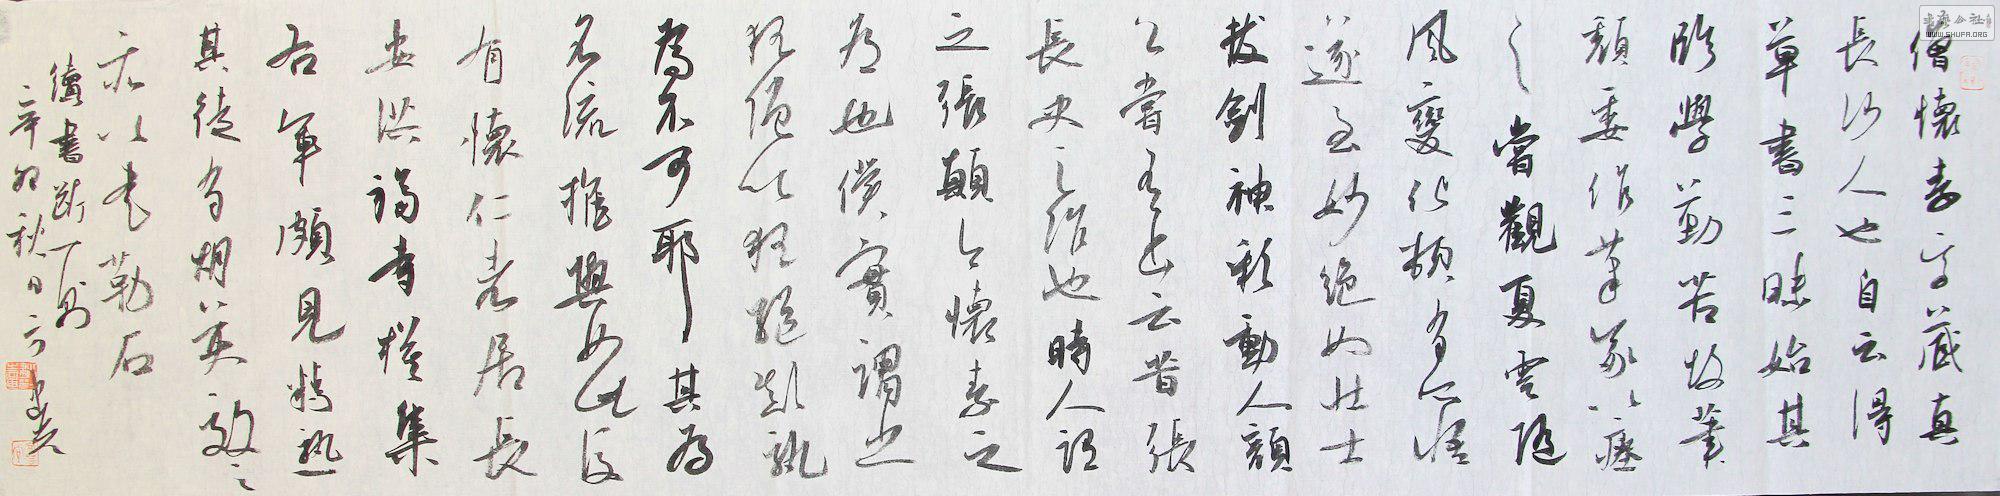 僧懷素字藏真
長沙人也自云得
草書三昧始其
臨學勤苦故筆
頹委作筆冢以瘞
之嘗觀夏雲隨
風變化頓有所悟
遂至妙絕如壯士
拔劍神彩動人顏
公嘗有書云昔張
長史之作也時人謂
之張顛今懷素之
為也僕實謂之
狂僧以狂繼顛孰
為不可耶其為
名流推與如此後
有懷仁者居長
安洪福寺模集
右軍頗見精熟
其徒有胡英效之
亦以勒石
續書斷一則
辛卯秋日方
WWW.SHUFA.ORG